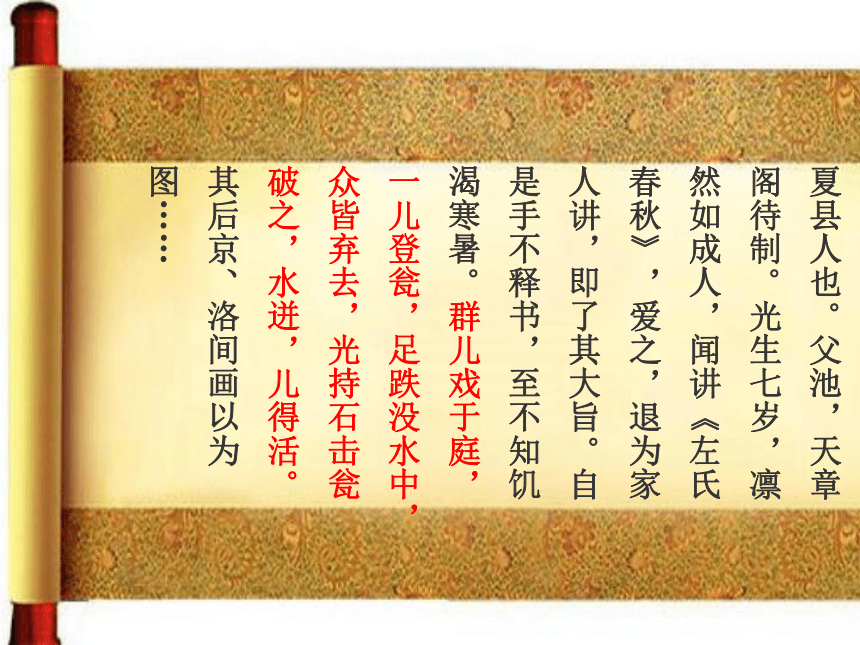 夏县人也。父池，天章
阁待制。光生七岁，凛
然如成人，闻讲《左氏
春秋》，爱之，退为家
人讲，即了其大旨。自
是手不释书，至不知饥
渴寒暑。群儿戏于庭，
一儿登瓮，足跌没水中，
众皆弃去，光持石击瓮
破之，水迸，儿得活。
其后京、洛间画以为
图……